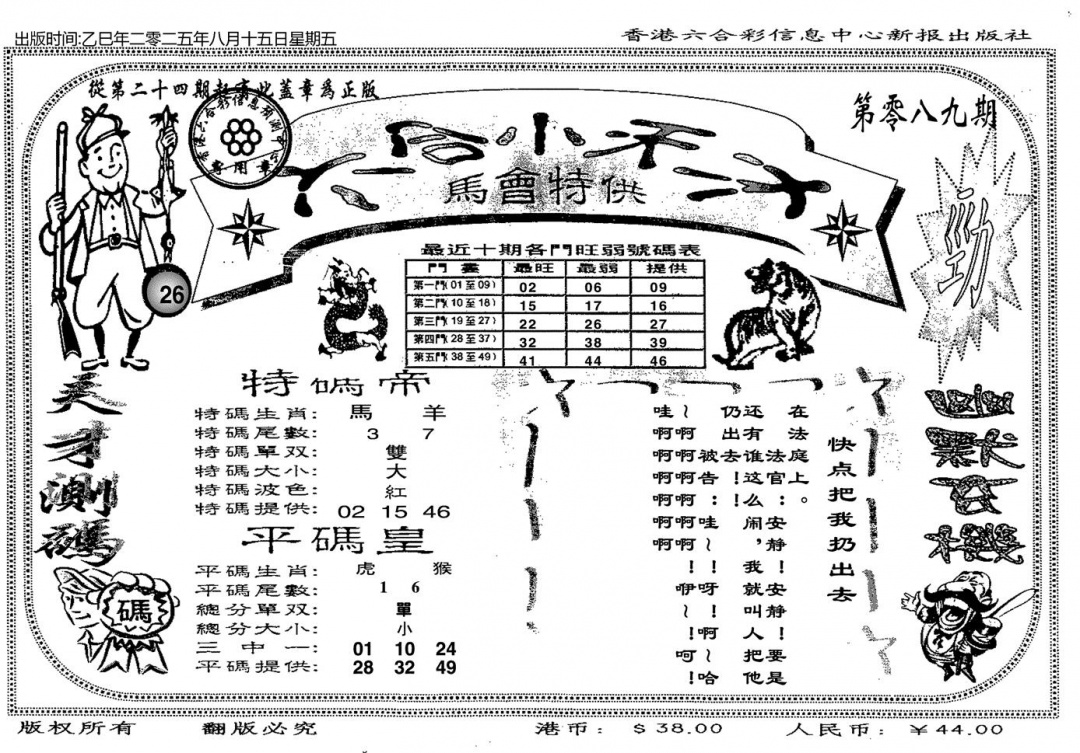 出版时间:乙巳年二零二五年八月十五日星期五
香港六合彩信息中心新报出版社
從第二十四期起有此蓋章爲正版
第零八九期
專用章
六合小禾二才
馬會特供
26
勁
最近十期各門旺弱號碼表
門畫 最旺 最弱 提供
第一門(01至09) 02 06 09
第二門(10至18) 15 17 16
第三門(19至27) 22 26 27
第四門(28至37) 32 38 39
第五門(38至49) 41 44 46
天才測碼
碼
特碼帝
特碼生肖: 馬 羊
特碼尾數: 3 7
特碼單双: 雙
特碼大小: 大
特碼波色: 紅
特碼提供: 02 15 46
平碼皇
平碼生肖: 虎 猴
平碼尾數: 1 6
總分單双: 單
總分大小: 小
三中一: 01 10 24
平碼提供: 28 32 49
幽默玄機
快点把我扔出去
在法庭上。安静!安静!要是
还有谁这么闹,我就叫人把他
仍出去!官:哇~!呀!啊~哈
哇~啊啊被告:哇~!咿~!呵!
啊啊啊啊啊啊啊啊啊啊
版权所有
翻版必究
港币: $38.00
人民币: ￥44.00